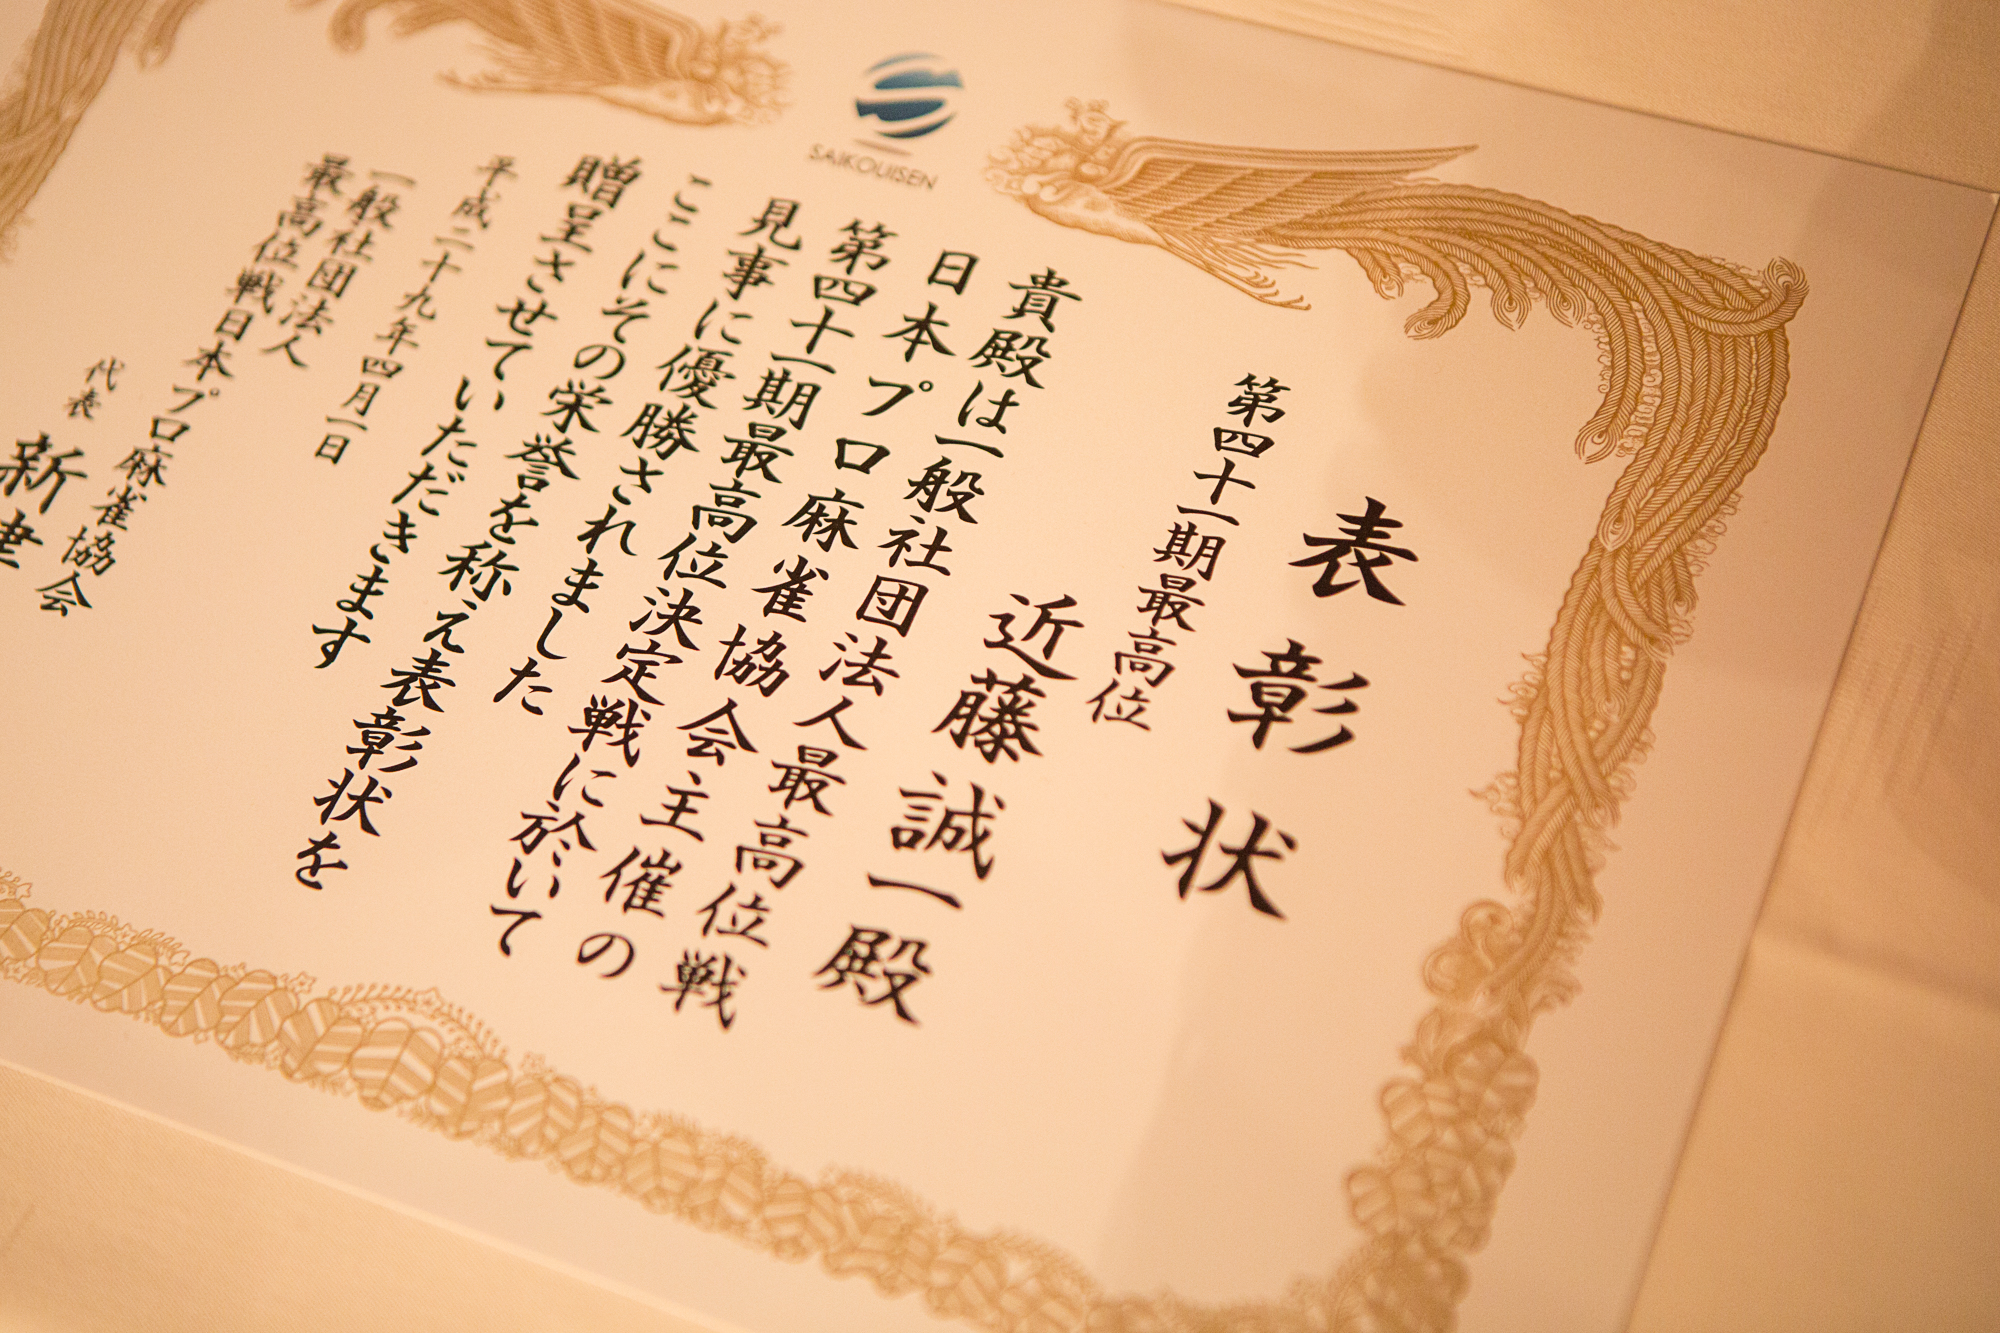 SAIKOUISEN
表彰状
第四十一期最高位
近藤誠一殿
貴殿は一般社団法人最高位戦
日本プロ麻雀協会主催の
第四十一期最高位決定戦に於いて
見事に優勝されました
ここにその栄誉を称え表彰状を
贈呈させていただきます
平成二十九年四月一日
一般社団法人
最高位戦日本プロ麻雀協会
代表 新